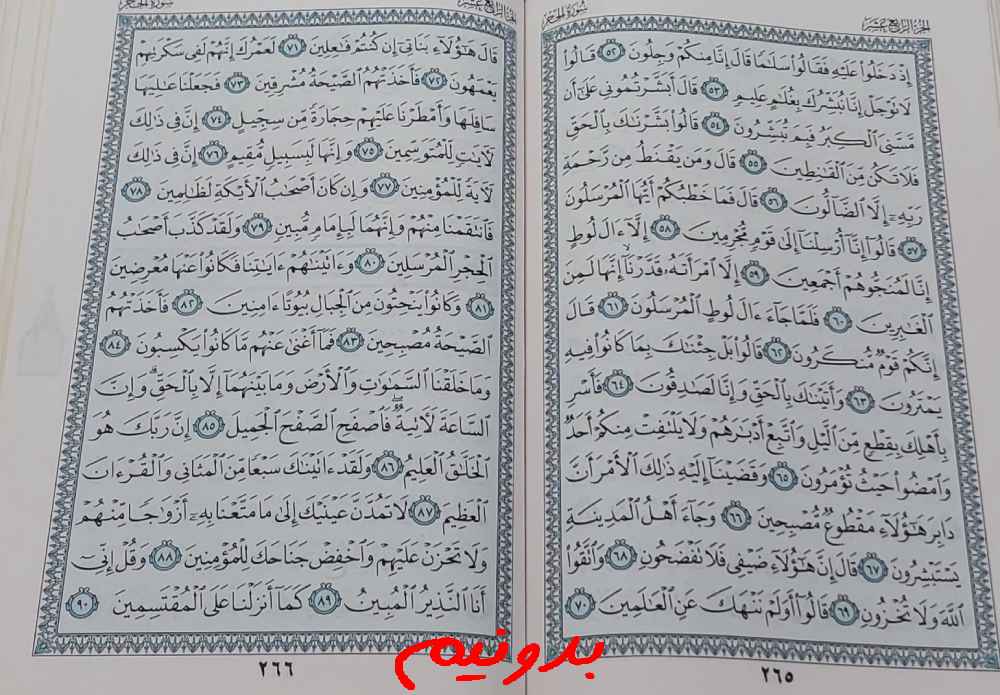 الجزء الرابع عشر
سورة الحجر
إِذْ دَخَلُوا۟ عَلَيْهِ فَقَالُوا۟ سَلَٰمًا قَالَ إِنَّا مِنكُمْ وَجِلُونَ ٥٢ قَالُوا۟
لَا تَوْجَلْ إِنَّا نُبَشِّرُكَ بِغُلَٰمٍ عَلِيمٍ ٥٣ قَالَ أَبَشَّرْتُمُونِى عَلَىٰٓ أَن
مَّسَّنِىَ ٱلْكِبَرُ فَبِمَ تُبَشِّرُونَ ٥٤ قَالُوا۟ بَشَّرْنَٰكَ بِٱلْحَقِّ
فَلَا تَكُن مِّنَ ٱلْقَٰنِطِينَ ٥٥ قَالَ وَمَن يَقْنَطُ مِن رَّحْمَةِ
رَبِّهِۦٓ إِلَّا ٱلضَّآلُّونَ ٥٦ قَالَ فَمَا خَطْبُكُمْ أَيُّهَا ٱلْمُرْسَلُونَ
٥٧ قَالُوٓا۟ إِنَّآ أُرْسِلْنَآ إِلَىٰ قَوْمٍ مُّجْرِمِينَ ٥٨ إِلَّآ ءَالَ لُوطٍ
إِنَّا لَمُنَجُّوهُمْ أَجْمَعِينَ ٥٩ إِلَّا ٱمْرَأَتَهُۥ قَدَّرْنَآ إِنَّهَا لَمِنَ
ٱلْغَٰبِرِينَ ٦٠ فَلَمَّا جَآءَ ءَالَ لُوطٍ ٱلْمُرْسَلُونَ ٦١ قَالَ
إِنَّكُمْ قَوْمٌ مُّنكَرُونَ ٦٢ قَالُوا۟ بَلْ جِئْنَٰكَ بِمَا كَانُوا۟ فِيهِ
يَمْتَرُونَ ٦٣ وَأَتَيْنَٰكَ بِٱلْحَقِّ وَإِنَّا لَصَٰدِقُونَ ٦٤ فَأَسْرِ
بِأَهْلِكَ بِقِطْعٍ مِّنَ ٱلَّيْلِ وَٱتَّبِعْ أَدْبَٰرَهُمْ وَلَا يَلْتَفِتْ مِنكُمْ أَحَدٌ
وَٱمْضُوا۟ حَيْثُ تُؤْمَرُونَ ٦٥ وَقَضَيْنَآ إِلَيْهِ ذَٰلِكَ ٱلْأَمْرَ أَنَّ
دَابِرَ هَٰٓؤُلَآءِ مَقْطُوعٌ مُّصْبِحِينَ ٦٦ وَجَآءَ أَهْلُ ٱلْمَدِينَةِ
يَسْتَبْشِرُونَ ٦٧ قَالَ إِنَّ هَٰٓؤُلَآءِ ضَيْفِى فَلَا تَفْضَحُونِ ٦٨ وَٱتَّقُوا۟
ٱللَّهَ وَلَا تُخْزُونِ ٦٩ قَالُوٓا۟ أَوَلَمْ نَنْهَكَ عَنِ ٱلْعَٰلَمِينَ ٧٠
٢٦٥
الجزء الرابع عشر
سورة الحجر
قَالَ هَٰٓؤُلَآءِ بَنَاتِىٓ إِن كُنتُمْ فَٰعِلِينَ ٧١ لَعَمْرُكَ إِنَّهُمْ لَفِى سَكْرَتِهِمْ
يَعْمَهُونَ ٧٢ فَأَخَذَتْهُمُ ٱلصَّيْحَةُ مُشْرِقِينَ ٧٣ فَجَعَلْنَا عَٰلِيَهَا
سَافِلَهَا وَأَمْطَرْنَا عَلَيْهِمْ حِجَارَةً مِّن سِجِّيلٍ ٧٤ إِنَّ فِى ذَٰلِكَ
لَءَايَٰتٍ لِّلْمُتَوَسِّمِينَ ٧٥ وَإِنَّهَا لَبِسَبِيلٍ مُّقِيمٍ ٧٦ إِنَّ فِى ذَٰلِكَ
لَءَايَةً لِّلْمُؤْمِنِينَ ٧٧ وَإِن كَانَ أَصْحَٰبُ ٱلْأَيْكَةِ لَظَٰلِمِينَ ٧٨
فَٱنتَقَمْنَا مِنْهُمْ وَإِنَّهُمَا لَبِإِمَامٍ مُّبِينٍ ٧٩ وَلَقَدْ كَذَّبَ أَصْحَٰبُ
ٱلْحِجْرِ ٱلْمُرْسَلِينَ ٨٠ وَءَاتَيْنَٰهُمْ ءَايَٰتِنَا فَكَانُوا۟ عَنْهَا مُعْرِضِينَ
٨١ وَكَانُوا۟ يَنْحِتُونَ مِنَ ٱلْجِبَالِ بُيُوتًا ءَامِنِينَ ٨٢ فَأَخَذَتْهُمُ
ٱلصَّيْحَةُ مُصْبِحِينَ ٨٣ فَمَآ أَغْنَىٰ عَنْهُم مَّا كَانُوا۟ يَكْسِبُونَ ٨٤
وَمَا خَلَقْنَا ٱلسَّمَٰوَٰتِ وَٱلْأَرْضَ وَمَا بَيْنَهُمَآ إِلَّا بِٱلْحَقِّ ۗ وَإِنَّ
ٱلسَّاعَةَ لَءَاتِيَةٌ ۖ فَٱصْفَحِ ٱلصَّفْحَ ٱلْجَمِيلَ ٨٥ إِنَّ رَبَّكَ هُوَ
ٱلْخَلَّٰقُ ٱلْعَلِيمُ ٨٦ وَلَقَدْ ءَاتَيْنَٰكَ سَبْعًا مِّنَ ٱلْمَثَانِى وَٱلْقُرْءَانَ
ٱلْعَظِيمَ ٨٧ لَا تَمُدَّنَّ عَيْنَيْكَ إِلَىٰ مَا مَتَّعْنَا بِهِۦٓ أَزْوَٰجًا مِّنْهُمْ
وَلَا تَحْزَنْ عَلَيْهِمْ وَٱخْفِضْ جَنَاحَكَ لِلْمُؤْمِنِينَ ٨٨ وَقُلْ إِنِّىٓ
أَنَا ٱلنَّذِيرُ ٱلْمُبِينُ ٨٩ كَمَآ أَنزَلْنَا عَلَى ٱلْمُقْتَسِمِينَ ٩٠
٢٦٦
بدونيم